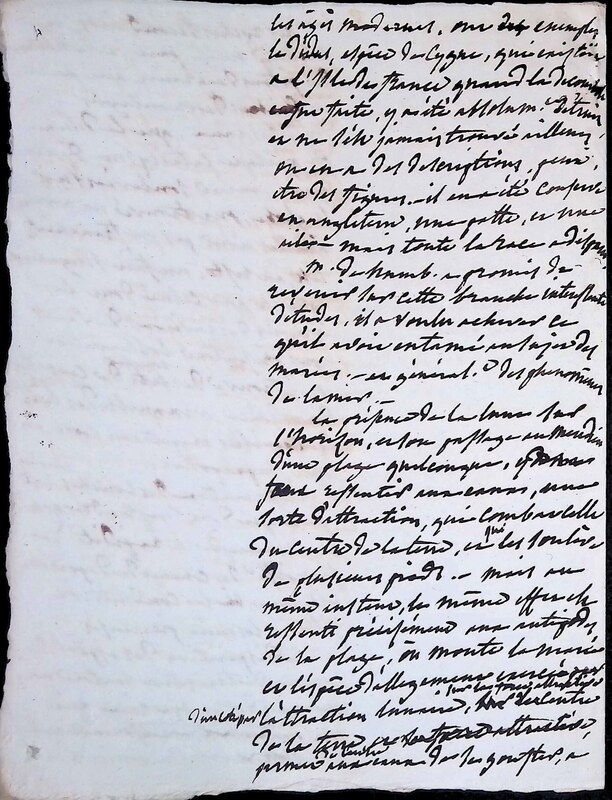 les âges modernes, on a des exemples
le Didus, espèce de Cygne, qui existoit
a l'Isle de france quand la decouverte
en fut faite, y a été absolum.t detruit
et ne s'est jamais trouvé ailleurs,
on en a des descriptions, peut
etre des figures – il en a été conservé
en angleterre, une patte, et une
aile – mais toute la race a disparu
M. de humb. a promis de
revenir sur cette branche interessante
d'etudes, il a voulu achever ce
qu'il avoit entamé au sujet des
marées – en général et des phenomenes
de la mer. –
la présence de la lune sur
l'horizon, et son passage au meridien
d'une plage quelconque,
font ressentir aux eaux, une
sorte d'attraction, qui combat celle
du centre de la terre, et qui les souleve
de plusieurs pieds – mais au
même instant, le même effet est
ressenti précisément aux antipodes
de la plage, où monte la marée
et l'espèce d'allegement
sur les forces attractives
d'un coté par l'attraction lunaire, du centre
de la terre attractive,
permet aux eaux de se gonfler, a